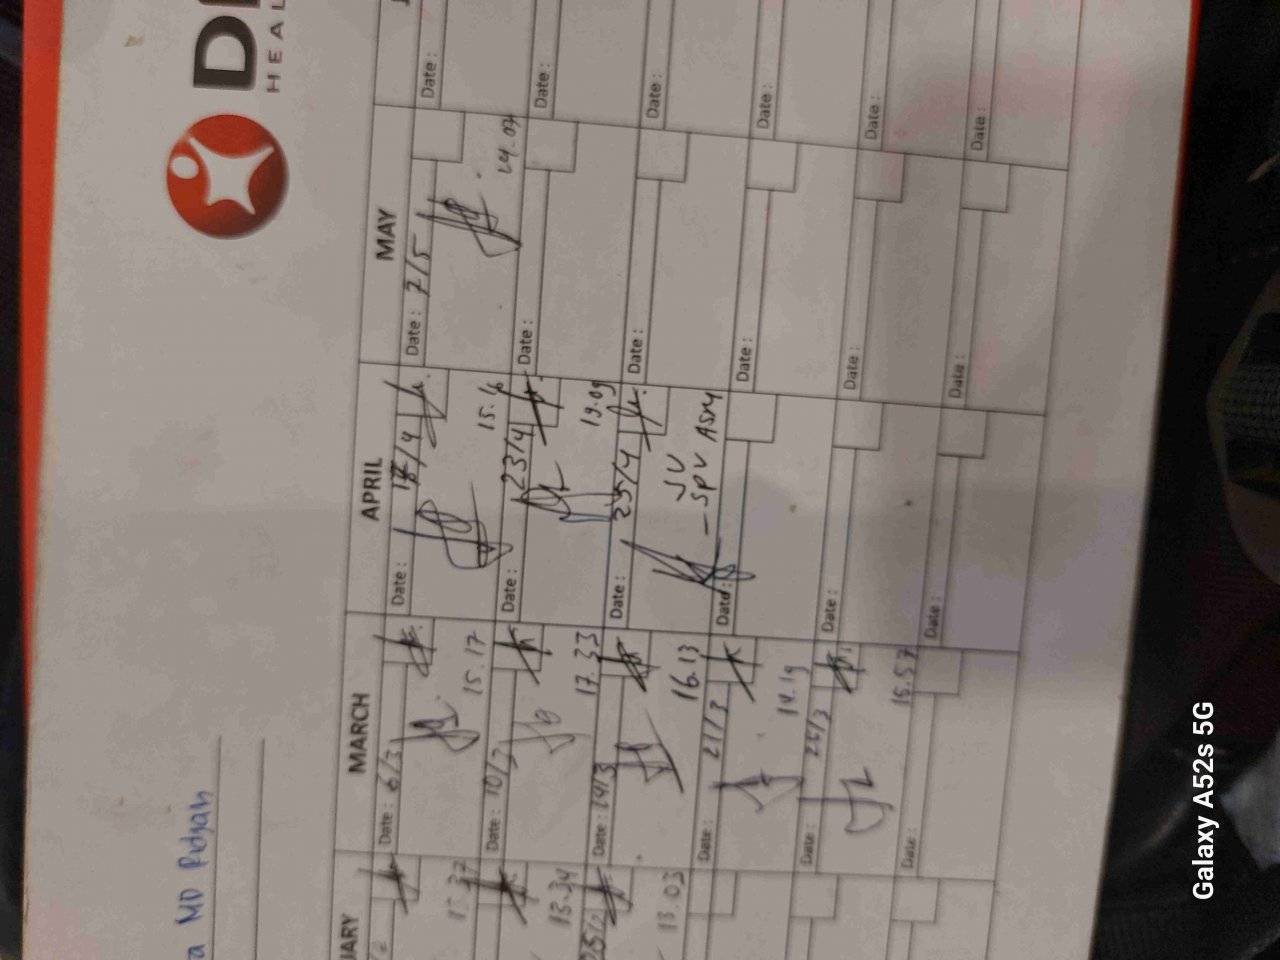 HEAL
a MD Ridyan
UARY
MARCH
APRIL
MAY
Date: 6/3
Date:
Date: 7/5
Date:
13.37
15.17
15.16
14.07
Date: 10/3
Date: 23/4
Date:
Date:
13.34
17.33
19.09
Date: 14/3
Date: 25/4
Date:
Date:
13.03
16.13
JU
- SPV ASM
Date: 21/3
Date:
Date:
Date:
14.19
Date: 26/3
Date:
Date:
Date:
15.57
Date:
Date:
Date:
Date:
Galaxy A52s 5G